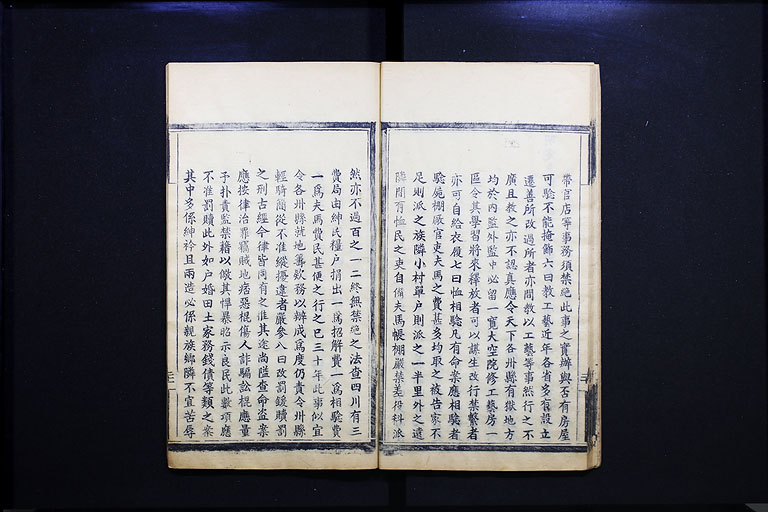 帶官店等事務須禁絕此事之實辦與否有房屋
可驗不能掩飾六曰教工藝近年各省多有設立
遷善所改過所者亦間教以工藝等事然行之不
廣且教之亦不認真應令天下各州縣有獄地方
均於內監外監中必留一寬大空院修工藝房一
區令其學習將來釋放者可以謀生改行禁繫者
亦可自給衣履七曰恤相驗凡有命案應相驗者
驗屍棚廠官吏夫馬之費甚多均取之被告家不
足則派之族隣小村單戶則派之一半里外之遠
隣間有恤民之吏自備夫馬帳棚嚴禁差役科派
然亦不過百之一二終無禁絕之法查四川有三
費局由紳民糧戶捐出一爲招解費一爲相驗費
一爲夫馬費民甚便之行之已三十年此事似宜
令各州縣就地籌欵務以辦成爲度仍責令州縣
輕騎簡從不准縱擾違者嚴參八曰改罰鍰贖罰
之刑古經今律皆同有之准其途尚隘查命盜案
應按律治罪竊賊地痞惡棍傷人詐騙訟棍應量
予扑責監禁藉以儆其悍暴昭示良民此數項應
不准罰贖此外如戶婚田土家務錢債等類之案
其中多係紳衿且兩造必係親族鄉隣不宜苦辱